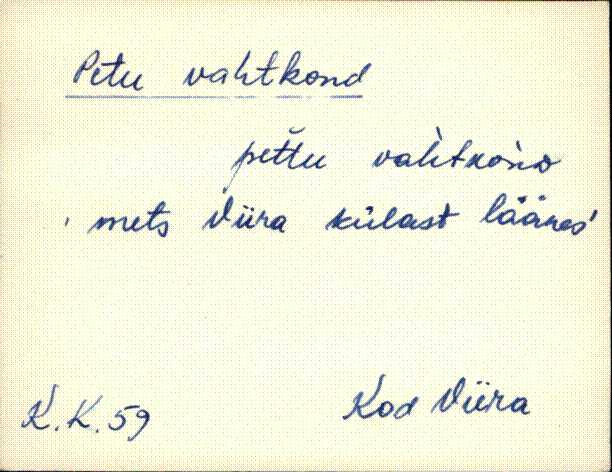 Petu vahtkond
pettu vahtkond
'mets Viira külast läänes'
K.K. 59
Kod Viira